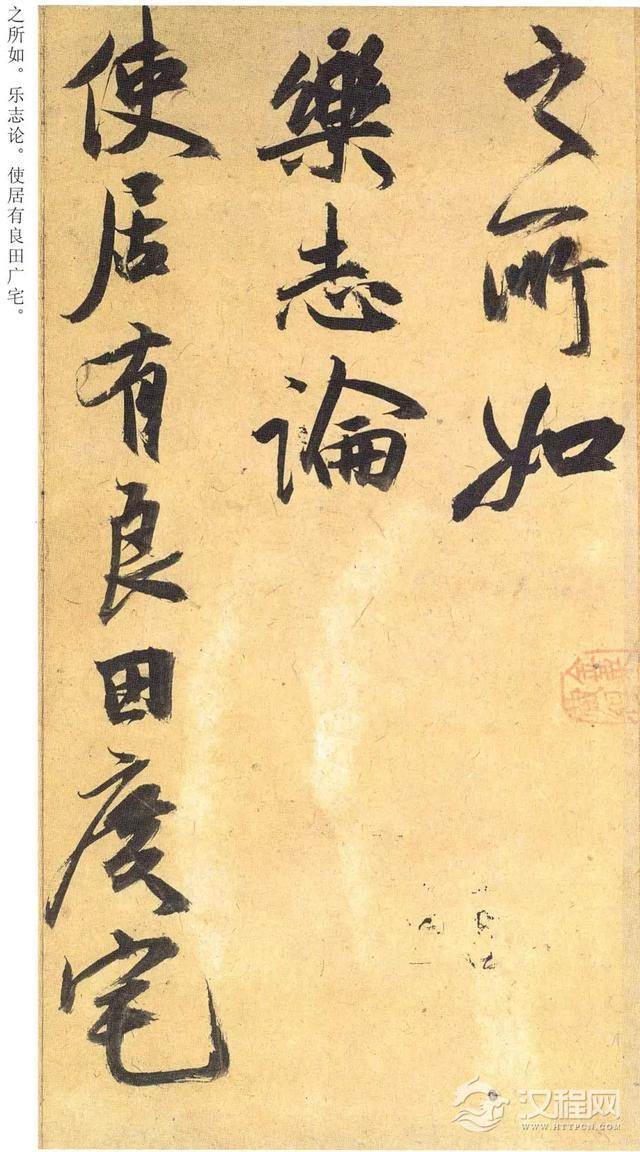 之所如
樂志論
使居有良田廣宅
之所如。乐志论。使居有良田广宅。
汉程网
WWW.HTTPCN.COM